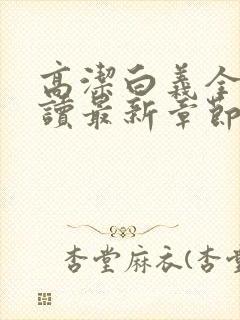 高潔白義全
讀最新章節
杏堂麻衣(杏堂